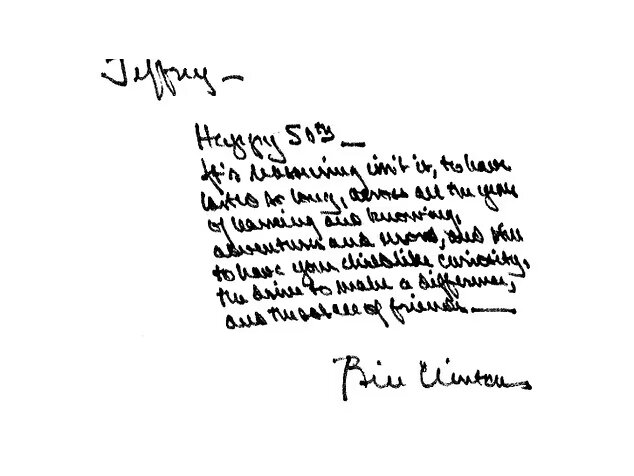 Jeffrey –
Happy 50th –
It's reassuring isn't it, to have
lasted as long, across all the years
of learning and knowing,
adventures and and also
to have your childlike curiosity,
the drive to make a difference,
and the solace of friends. —
Bill Clinton